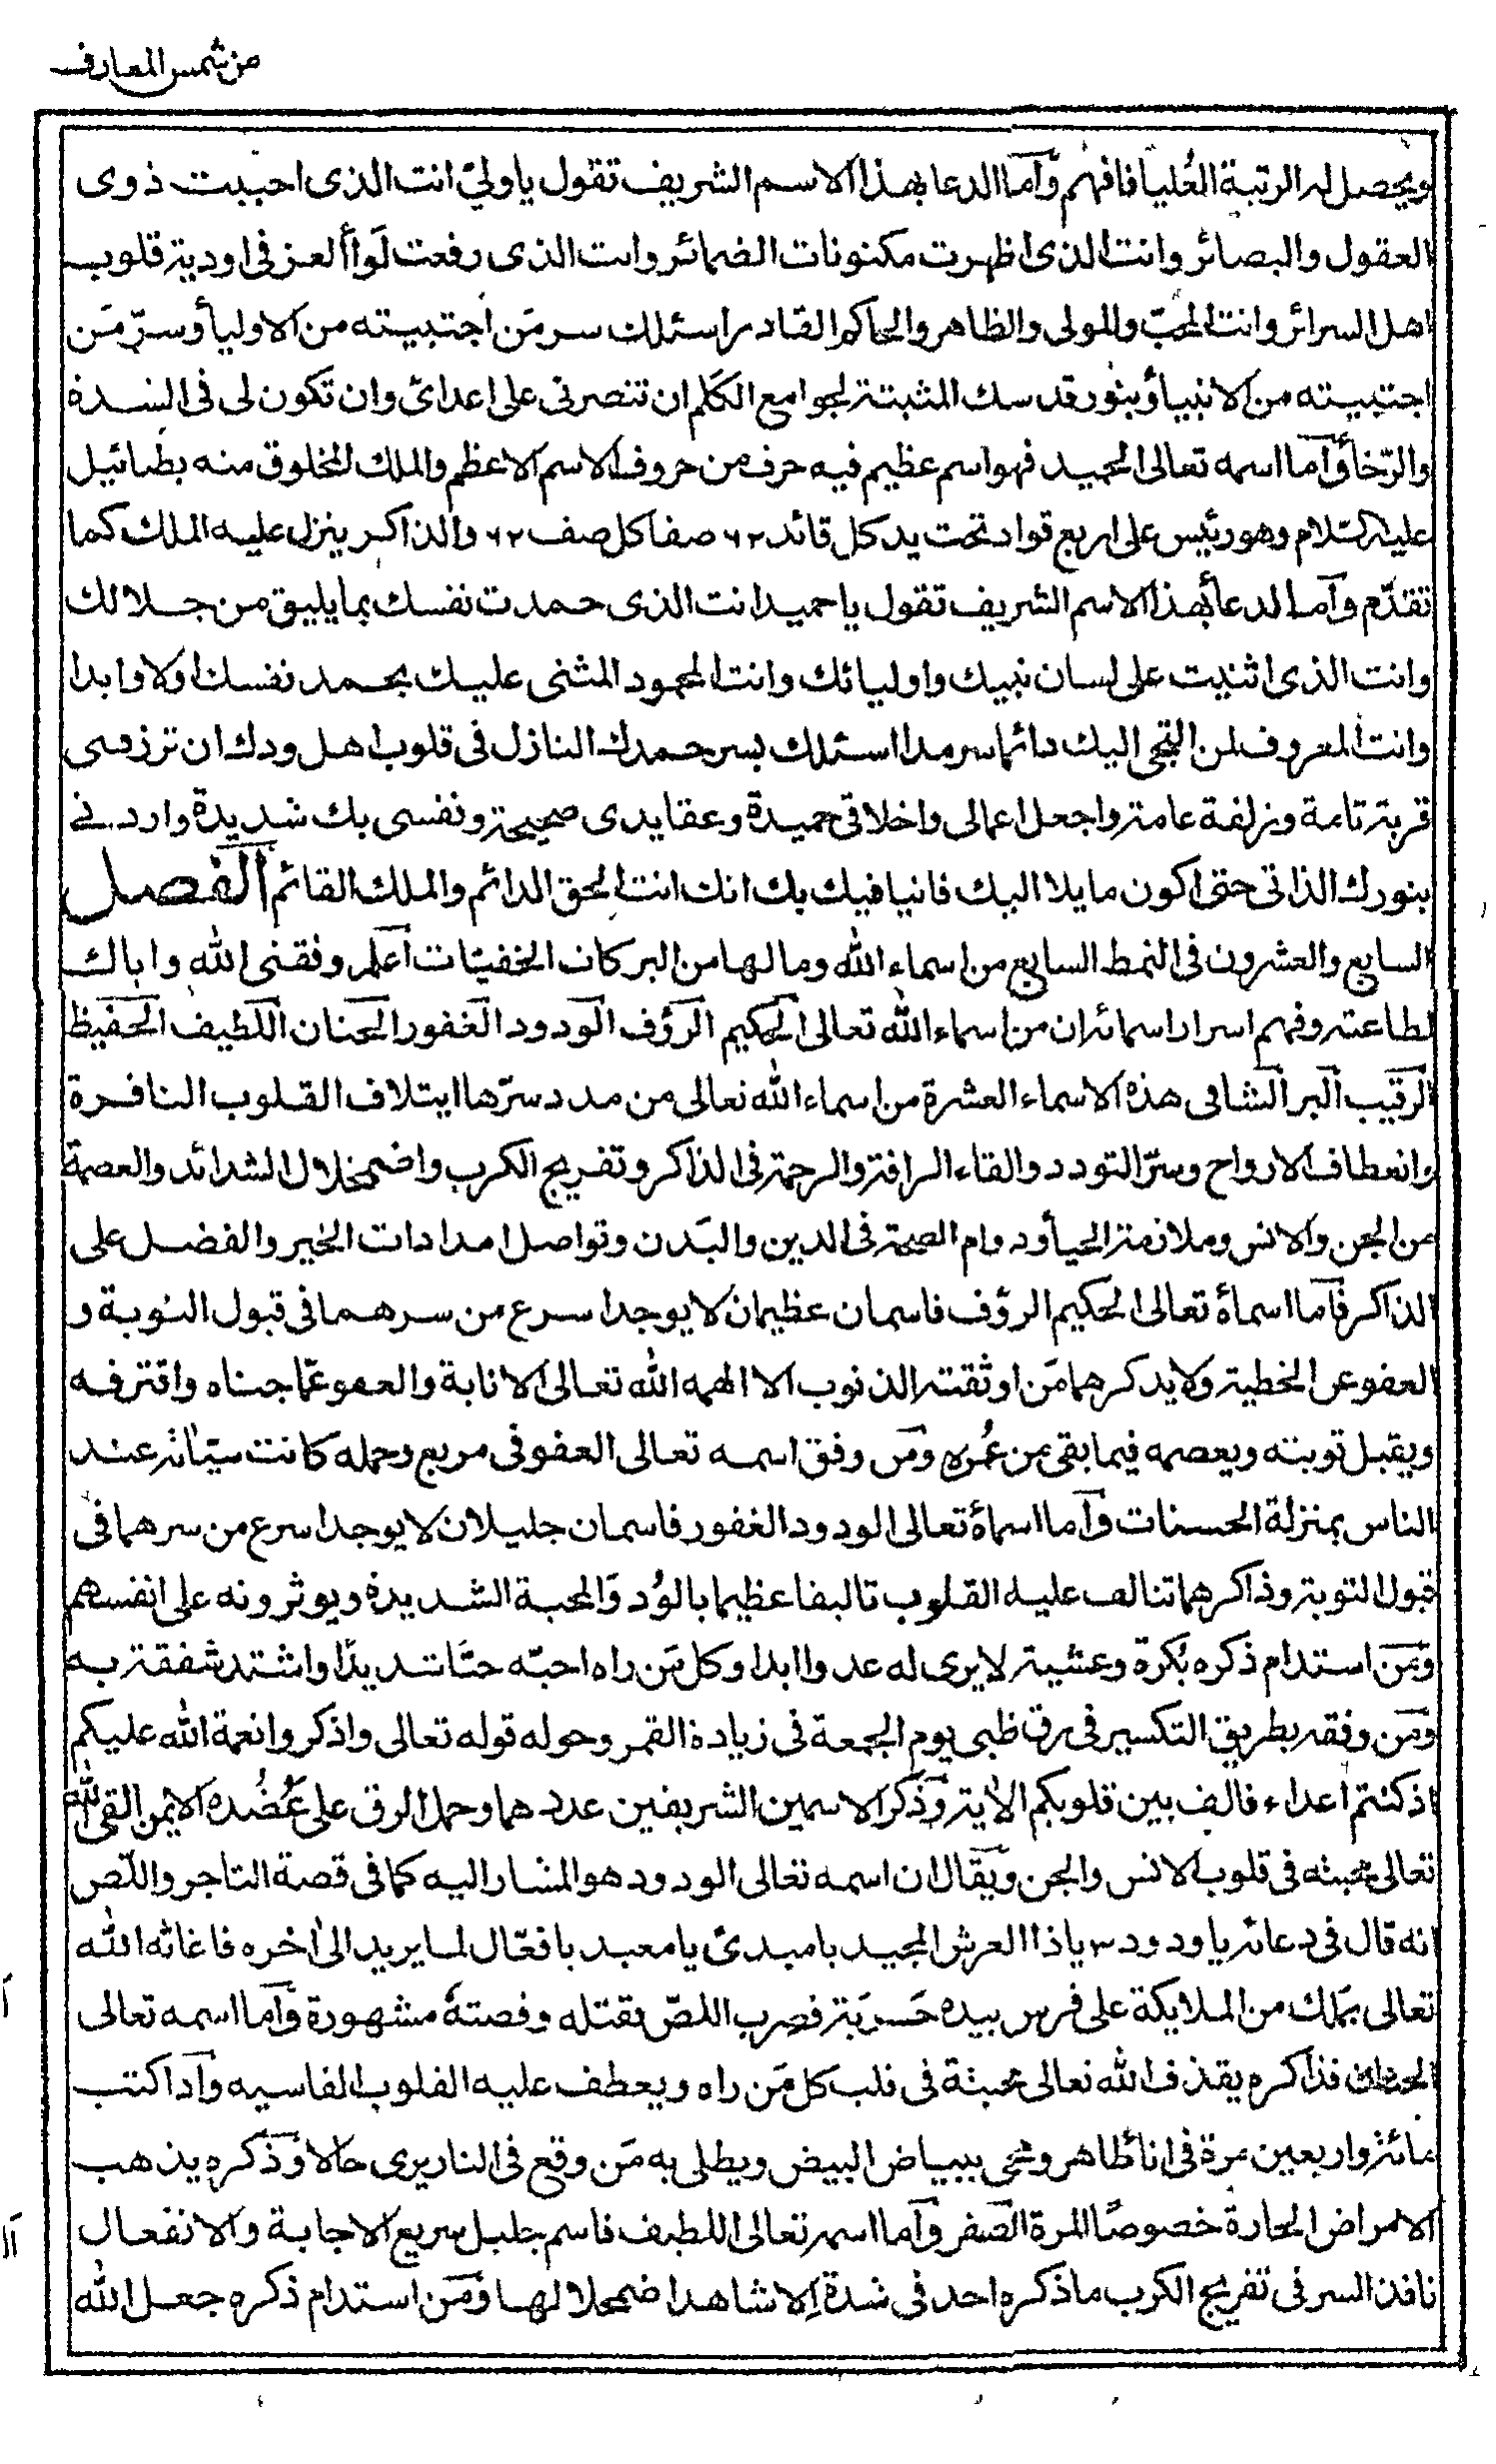 من شمس المعارف
ويحصل له الرتبة العُليا فافهم وآما الدعا بهذا الاسم الشريف تقول يا وليّ انت الذى احببت ذوى
العقول والبصائر وانت الذى اظهرت مكنونات الضمائر وانت الذى رفعت لَوأ العز فى اودية قلوب
اهل السرائر وانت المحبّ والمولى والظاهر والحاكم القادر اسئلك سر مَن اجتبيته من الاوليأ وسرّ مَن
اجتبيته من الانبيأ وبنور قدسك المثبتة لجوامع الكَلم ان تنصرنى على اعدائ وان تكون لى فى الشدة
والرّخأ وآما اسمه تعالى الحميد فهو اسم عظيم فيه حرف من حروف الاسم الاعظم والملك المخلوق منه بطيائيل
عليه السّلام وهو رئيس على اربع قواد تحت يد كل قائد ٦٢ صفا كل صف ٦٢ والذاكر ينزل عليه الملك كما
تقدّم وآما الدعأ بهذا الاسم الشريف تقول يا حميد انت الذى حمدت نفسك بما يليق من جلالك
وانت الذى اثنيت على لسان نبيك واوليائك وانت المحمود المثنى عليك بحمد نفسك اولا وابدا
وانت المعروف لمن التجى اليك دائما سرمدا اسئلك بسر حمدك النازل فى قلوب اهل ودك ان ترزقنى
قربة تامة وزلفة عامة واجعل اعمالى واخلاقى حميدة وعقايدى صحيحة ونفسى بك شديدة وارد نى
بنورك الذاتى حتى اكون مايلا اليك فانيا فيك بك انك انت الحق الدائم والملك القائم الفصل
السابع والعشرون فى النمط السابع من اسماء الله وما لها من البركات الخفيّات آعلم وفقنى الله واياك
لطاعته وفهم اسرار اسمائه ان من اسماء الله تعالى الحكيم الرؤف الودود الغفور الحنان اللطيف الحفيظ
الرقيب البر الشافى هذه الاسماء العشرة من اسماء الله تعالى من مدد سرّها ايتلاف القلوب النافرة
وانعطاف الارواح وسرّ التودد والقاء الرافة والرحمة فى الذاكر وتفريج الكرب واضمحلال الشدائد والعصمة
من الجن والانس وملازمة الحيأ ودوام الصحة فى الدين والبَدن وتواصل امدادات الخير والفضل على
الذاكر فآما اسمأه تعالى الحكيم الرؤف فاسمان عظيمان لا يوجد اسرع من سرهما فى قبول التوبة و
العفو عن الخطية ولا يذكرهما مَن اوثقته الذنوب الا الهمه الله تعالى الانابة والعفو عمّا جناه واقترفه
ويقبل توبته ويعصمه فيما بقى من عُمره ومن وفق اسمه تعالى العفو فى مربع وحمله كانت سيّاته عند
الناس بمنزلة الحسنات وآما اسمأه تعالى الودود الغفور فاسمان جليلان لا يوجد اسرع من سرهما فى
قبول التوبة وذاكرهما تتالف عليه القلوب تاليفا عظيما بالوُد والمحبة الشديدة ويوثرونه على انفسهم
ومَن استدام ذكره بُكرة وعشية لا يرى له عدوا ابدا وكل مَن راه احبّه حبّا شديدًا واشتد شفقة به
ومَن وفقه بطريق التكسير فى رق ظبى يوم الجمعة فى زيادة القمر وحوله قوله تعالى واذكروا نعمة الله عليكم
اذ كنتم اعداء فالف بين قلوبكم الاية وذَكر الاسمين الشريفين عددهما وحمل الرق على عَضُده الايمن القى الله
تعالى محبته فى قلوب الانس والجن ويقال ان اسمه تعالى الودود هو المشار اليه كما فى قصة التاجر واللّص
انه قال فى دعائه يا ودود ٣ يا ذا العرش المجيد يا مبدئ يا معيد يا فعّال لما يريد الى اخره فاغاثه الله
تعالى بملك من الملايكة على فرس بيده حَربَة فضرب اللصّ فقتله وقصتهُ مشهورة وآما اسمه تعالى
الحنان فذاكره يقذف الله تعالى محبته فى قلب كل مَن راه ويعطف عليه القلوب القاسيه وآذا كتب
مائة واربعين مرة فى انأ طاهر ومحى ببياض البيض ويطلى به مَن وقع فى النار يرى حالا وذكره يذهب
الامراض الحارة خصوصًا المرة الصفر وآما اسمه تعالى اللطيف فاسم جليل سريع الاجابة والانفعال
نافذ السر فى تفريج الكرب ما ذكره احد فى شدة إلا شاهد اضمحلالها ومَن استدام ذكره جعل الله